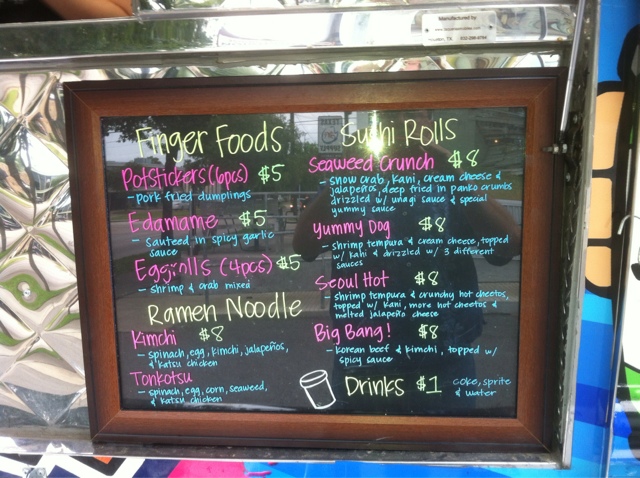 Manufactured by:
Finger Foods
Potstickers (6pcs) $5
- pork fried dumplings
Edamame $5
- sauteed in spicy garlic
sauce
Eggrolls (4pcs) $5
- shrimp & crab mixed
Ramen Noodle
Kimchi $8
- spinach, egg, kimchi, jalapeños,
& katsu chicken
Tonkotsu
- spinach, egg, corn, seaweed,
& katsu chicken
Sushi Rolls
Seaweed Crunch $8
- snow crab, kani, cream cheese &
jalapeños, deep fried in panko crumbs
drizzled w/ unagi sauce & special
yummy sauce
Yummy Dog $8
- shrimp tempura & cream cheese, topped
w/ kani & drizzled w/ 3 different
sauces
Seoul Hot $8
- shrimp tempura & crunchy hot cheetos,
topped w/ kani, more hot cheetos &
melted jalapeño cheese
Big Bang! $8
- korean beef & kimchi, topped w/
spicy sauce
Drinks $1 coke, sprite
& water